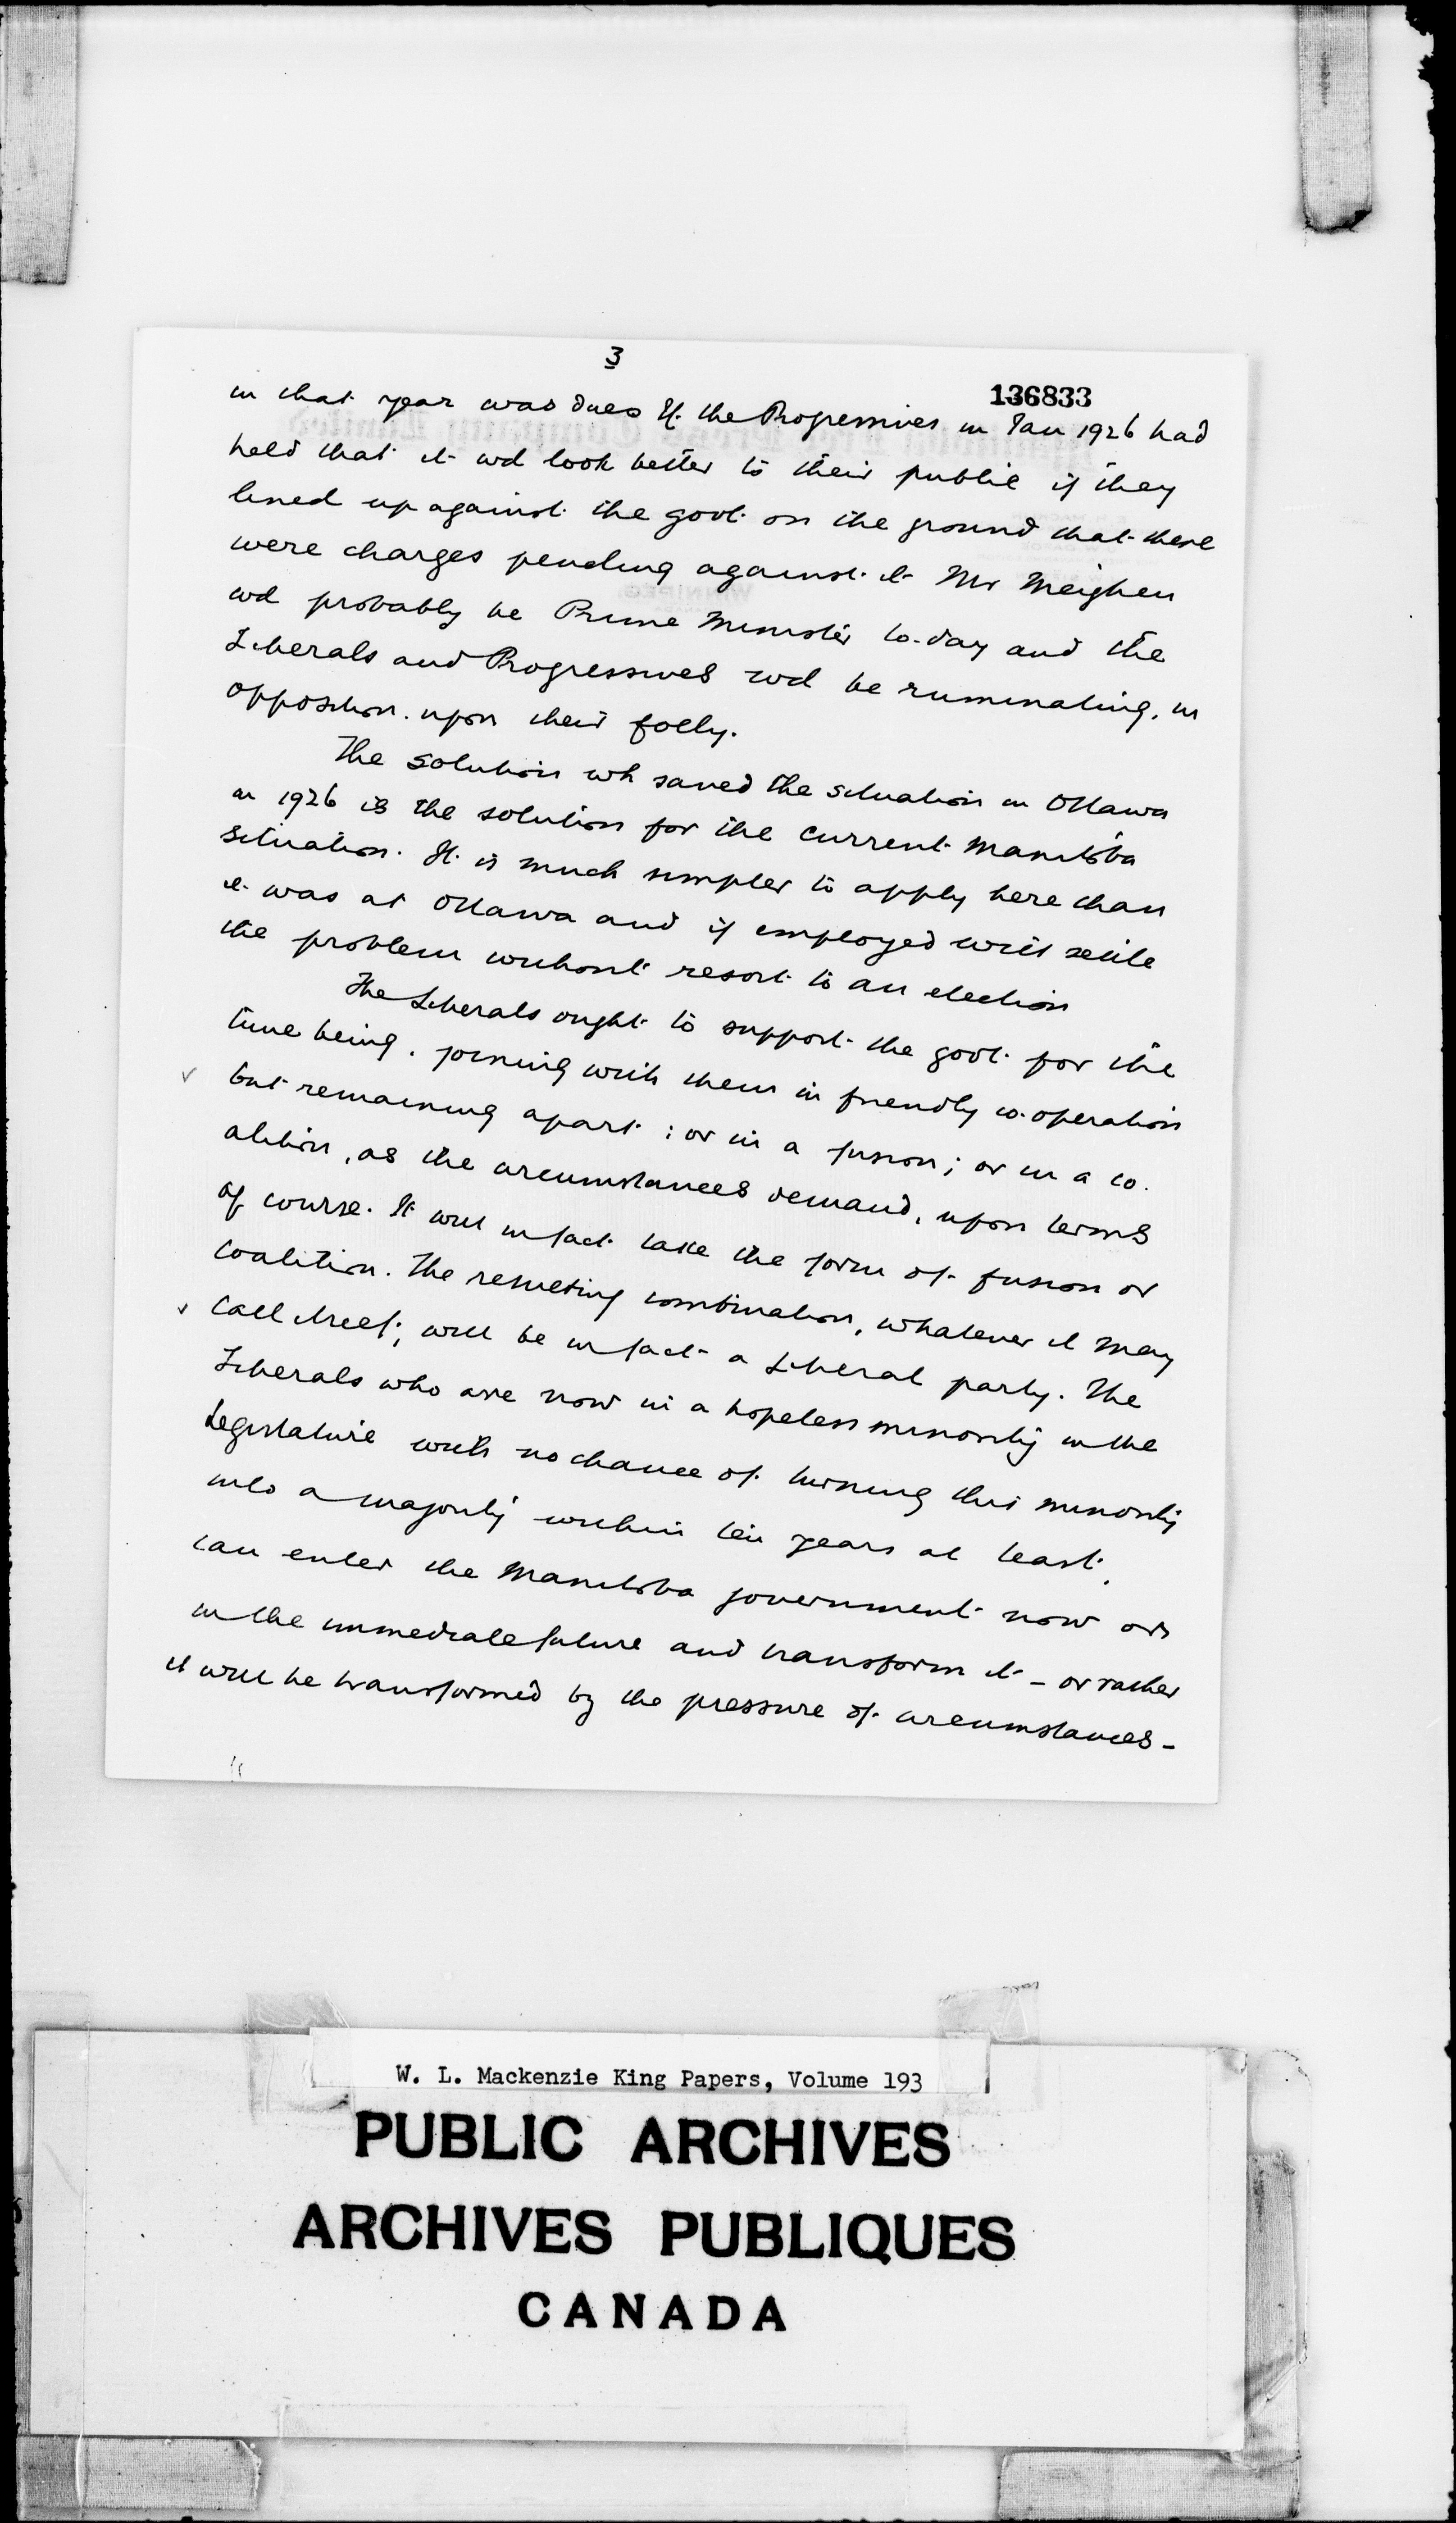 3
136833
in that year was due. If the Progressives in Jan 1926 had
held that it wd look better to their public if they
lined up against the govt on the ground that there
were charges pending against it Mr Meighen
wd probably be Prime Minister to-day and the
Liberals and Progressives wd be ruminating, in
opposition, upon their folly.
The solution wh saved the situation in Ottawa
in 1926 is the solution for the current Manitoba
situation. It is much simpler to apply here than
it was at Ottawa and if employed will settle
the problem without resort to an election
The Liberals ought to support the govt for the
time being, joining with them in friendly co-operation
but remaining apart; or in a fusion; or in a co-
alition, as the circumstances demand, upon terms
of course. It will in fact take the form of fusion or
coalition. The resulting combination, whatever it may
call itself, will be in fact a Liberal party. The
Liberals who are now in a hopeless minority in the
Legislature with no chance of turning this minority
into a majority within ten years at least,
can enter the Manitoba government now or
in the immediate future and transform it - or rather
it will be transformed by the pressure of circumstances -
W. L. Mackenzie King Papers, Volume 193
PUBLIC ARCHIVES
ARCHIVES PUBLIQUES
CANADA